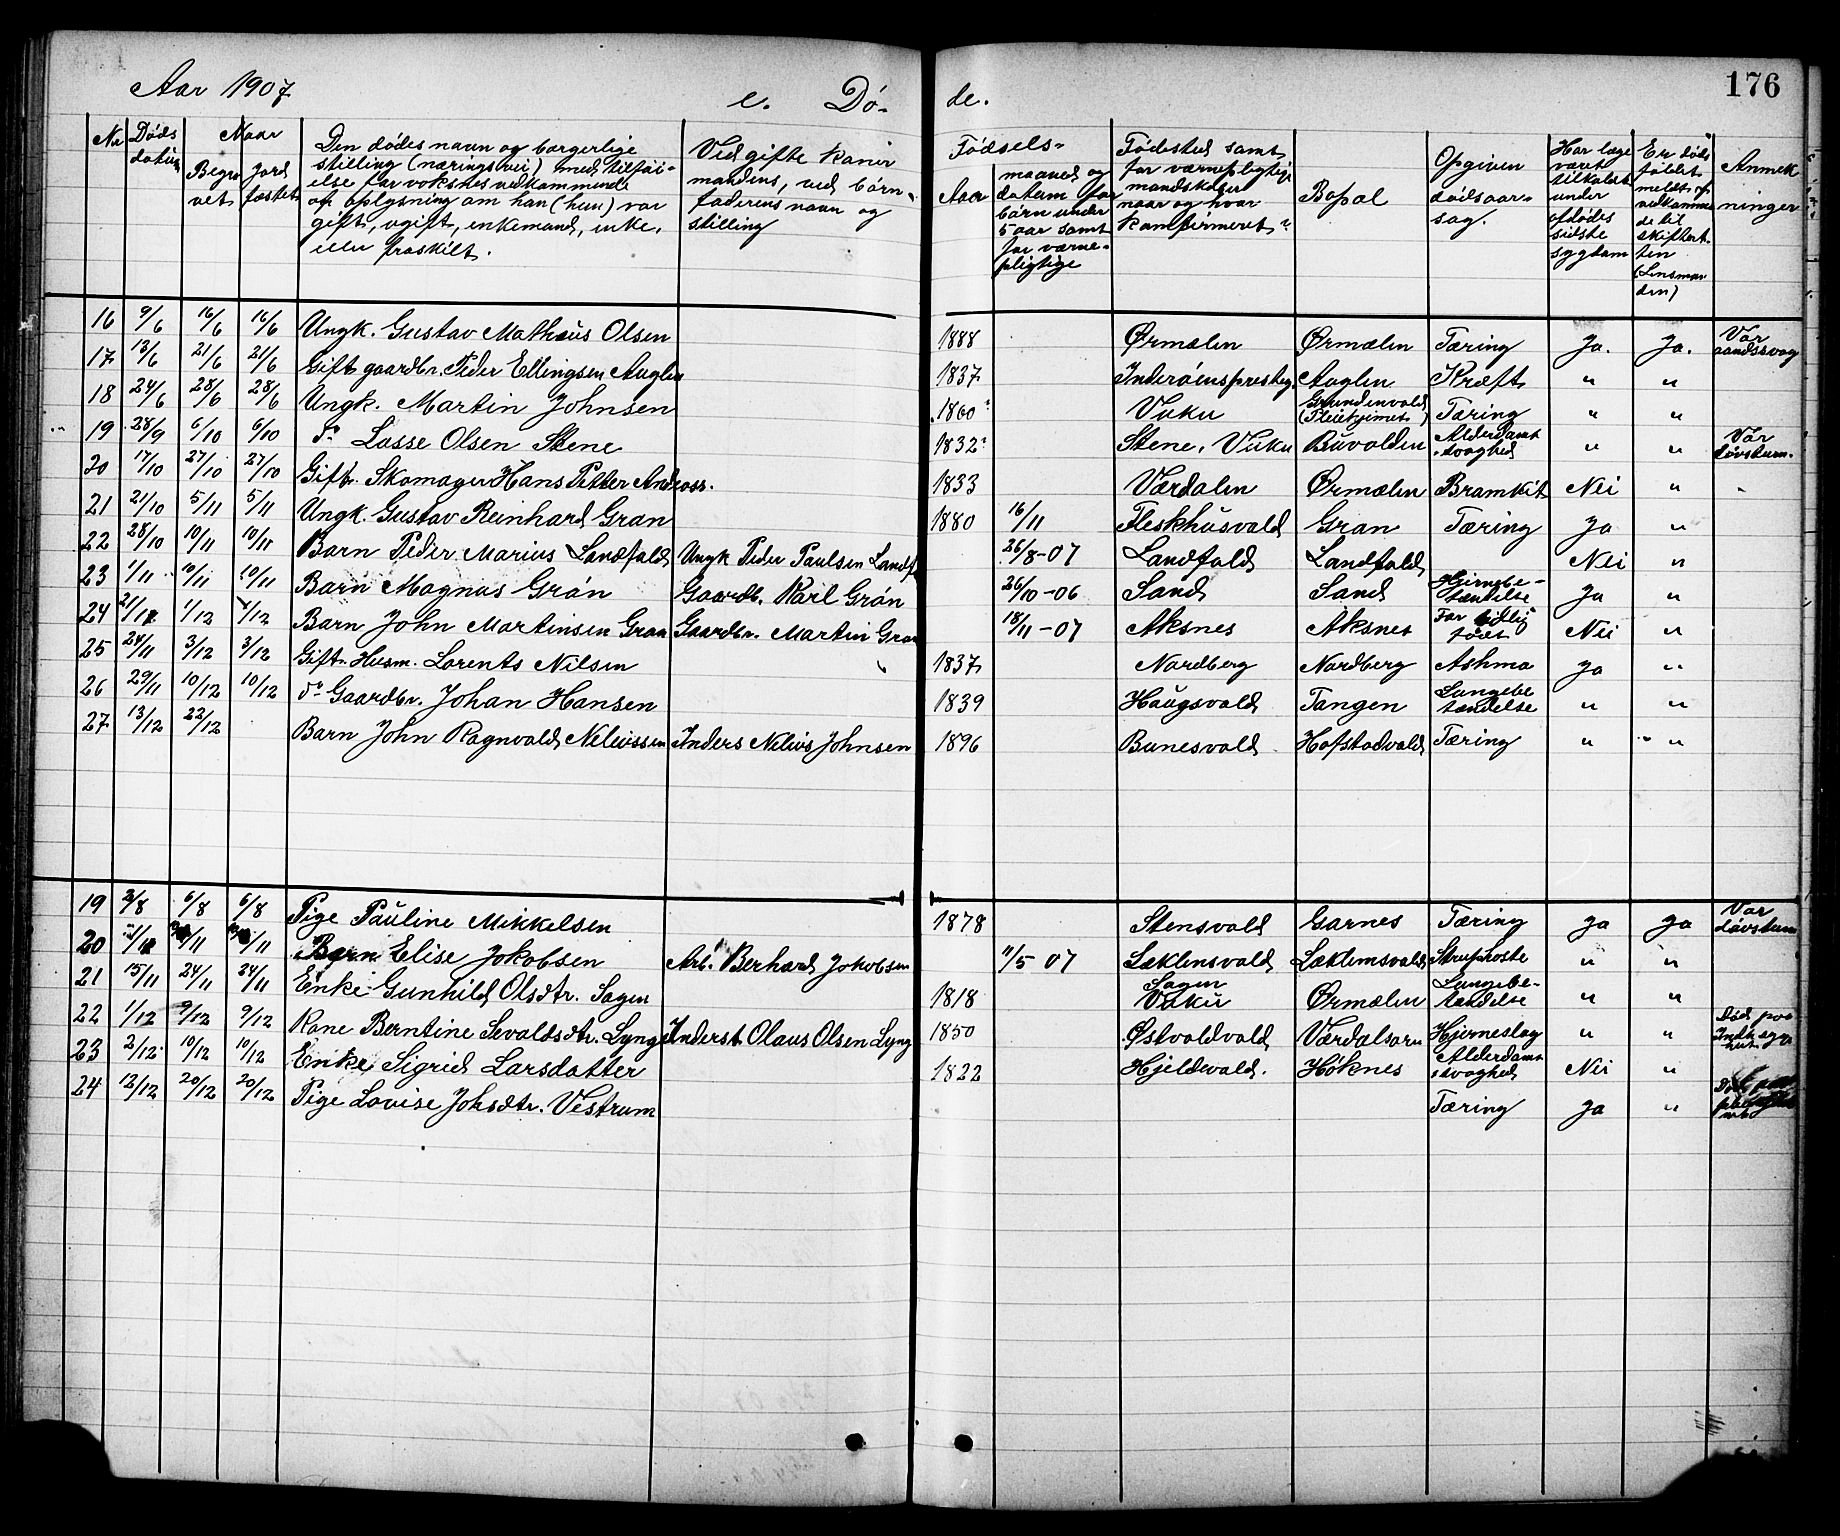 176
Aar 1907
e. Dö- de.
Nr Døds datum Naar Begra vet Jord fæstet Den dødes navn og borgerlige stilling (næringsvei) med tilføi- else for voksnes vedkommende om oplysning om han (hun) var gift, ugift, enkemand, enke, eller fraskilt. Ved gifte koner mandens, ved børn faderens navn og stilling Fødsels- Aar maaned og datum for børn under 5 aar samt for værne- pligtige Fødested samt for værnepligtige mandskaber naar og hvor konfirmeret Bopæl Opgiven dødsaar- sag. Har læge været tilkaldt under afdødes sidste sygdom Er døds faldet meldt vedkommen de til skifteret ten (Lensman den) Anmerk ninger
16 9/6 16/6 16/6 Ungk. Gustav Mathæus Olsen 1888 Ørmælen Ørmælen Tæring Ja. Ja. Var aandssvag
17 13/6 21/6 21/6 Gift gaardbr. Peder Ellingsen Auglen 1837 Inderøens prestegj. Auglen Kræft " "
18 24/6 28/6 28/6 Ungk. Martin Johnsen 1860 Vuku Grundenvald (Pleiehjemmet) Tæring " "
19 28/9 6/10 6/10 do Lasse Olsen Stene 1832 Stene, Vuku Buvolden Alderdoms svaghed " " Var døvstum.
20 17/10 27/10 27/10 Gift. Skomager Hans Petter Andreass. 1833 Værdalen Ørmælen Bramkit Nei "
21 21/10 5/11 5/11 Ungk. Gustav Reinhard Gran 1880 16/11 Fleskhusvald Gran Tæring Ja "
22 28/10 10/11 10/11 Barn Peder Marius Landfald Ungk Peder Paulsen Landf 26/8-07 Landfald Landfald Nei "
23 1/11 10/11 10/11 Barn Magnus Grøn Gaardb. Karl Grøn 26/10-06 Sand Sand Hjernebe- tændelse Ja "
24 21/11 1/12 1/12 Barn John Martinsen Gran Gaardbr. Martin Gran 18/11-07 Aksnes Aksnes For tidlig født Nei "
25 24/11 3/12 3/12 Gift. Husm. Lorents Nilsen 1837 Nordberg Nordberg Asthma Ja "
26 29/11 10/12 10/12 do Gaardbr. Johan Hansen 1839 Haugsvald Tangen Lungebe tændelse " "
27 13/12 22/12 Barn John Ragnvald Neliussen Inders Nelius Johnsen 1896 Bunesvald Hofstadvald Tæring " "
19 2/8 6/8 6/8 Pige Pauline Mikkelsen 1878 Stensvald Garnes Tæring Ja Ja Var døvstum
20 /11 /11 /11 Barn Elise Jakobsen Arb. Berhard Jakobsen 11/5 07 Læklemsvald Læklemsvald Strubhoste " "
21 15/11 24/11 24/11 Enke Gunhild Olsdtr. Sagen 1818 Sagen Vuku Ørmælen Lungebe- tændelse " "
22 1/12 9/12 9/12 Kone Berntine Sevaldsdtr. Lyng Inderst Olaus Olsen Lyng 1850 Østvoldvald Værdalsøra Hjerneslag " " Død paa Indh. syge hus
23 2/12 10/12 10/12 Enke Sigrid Larsdatter 1822 Hjeldevald. Høknes Alderdoms svaghed Nei "
24 12/12 20/12 20/12 Pige Lovise Johsdtr. Vestrum Tæring Ja "